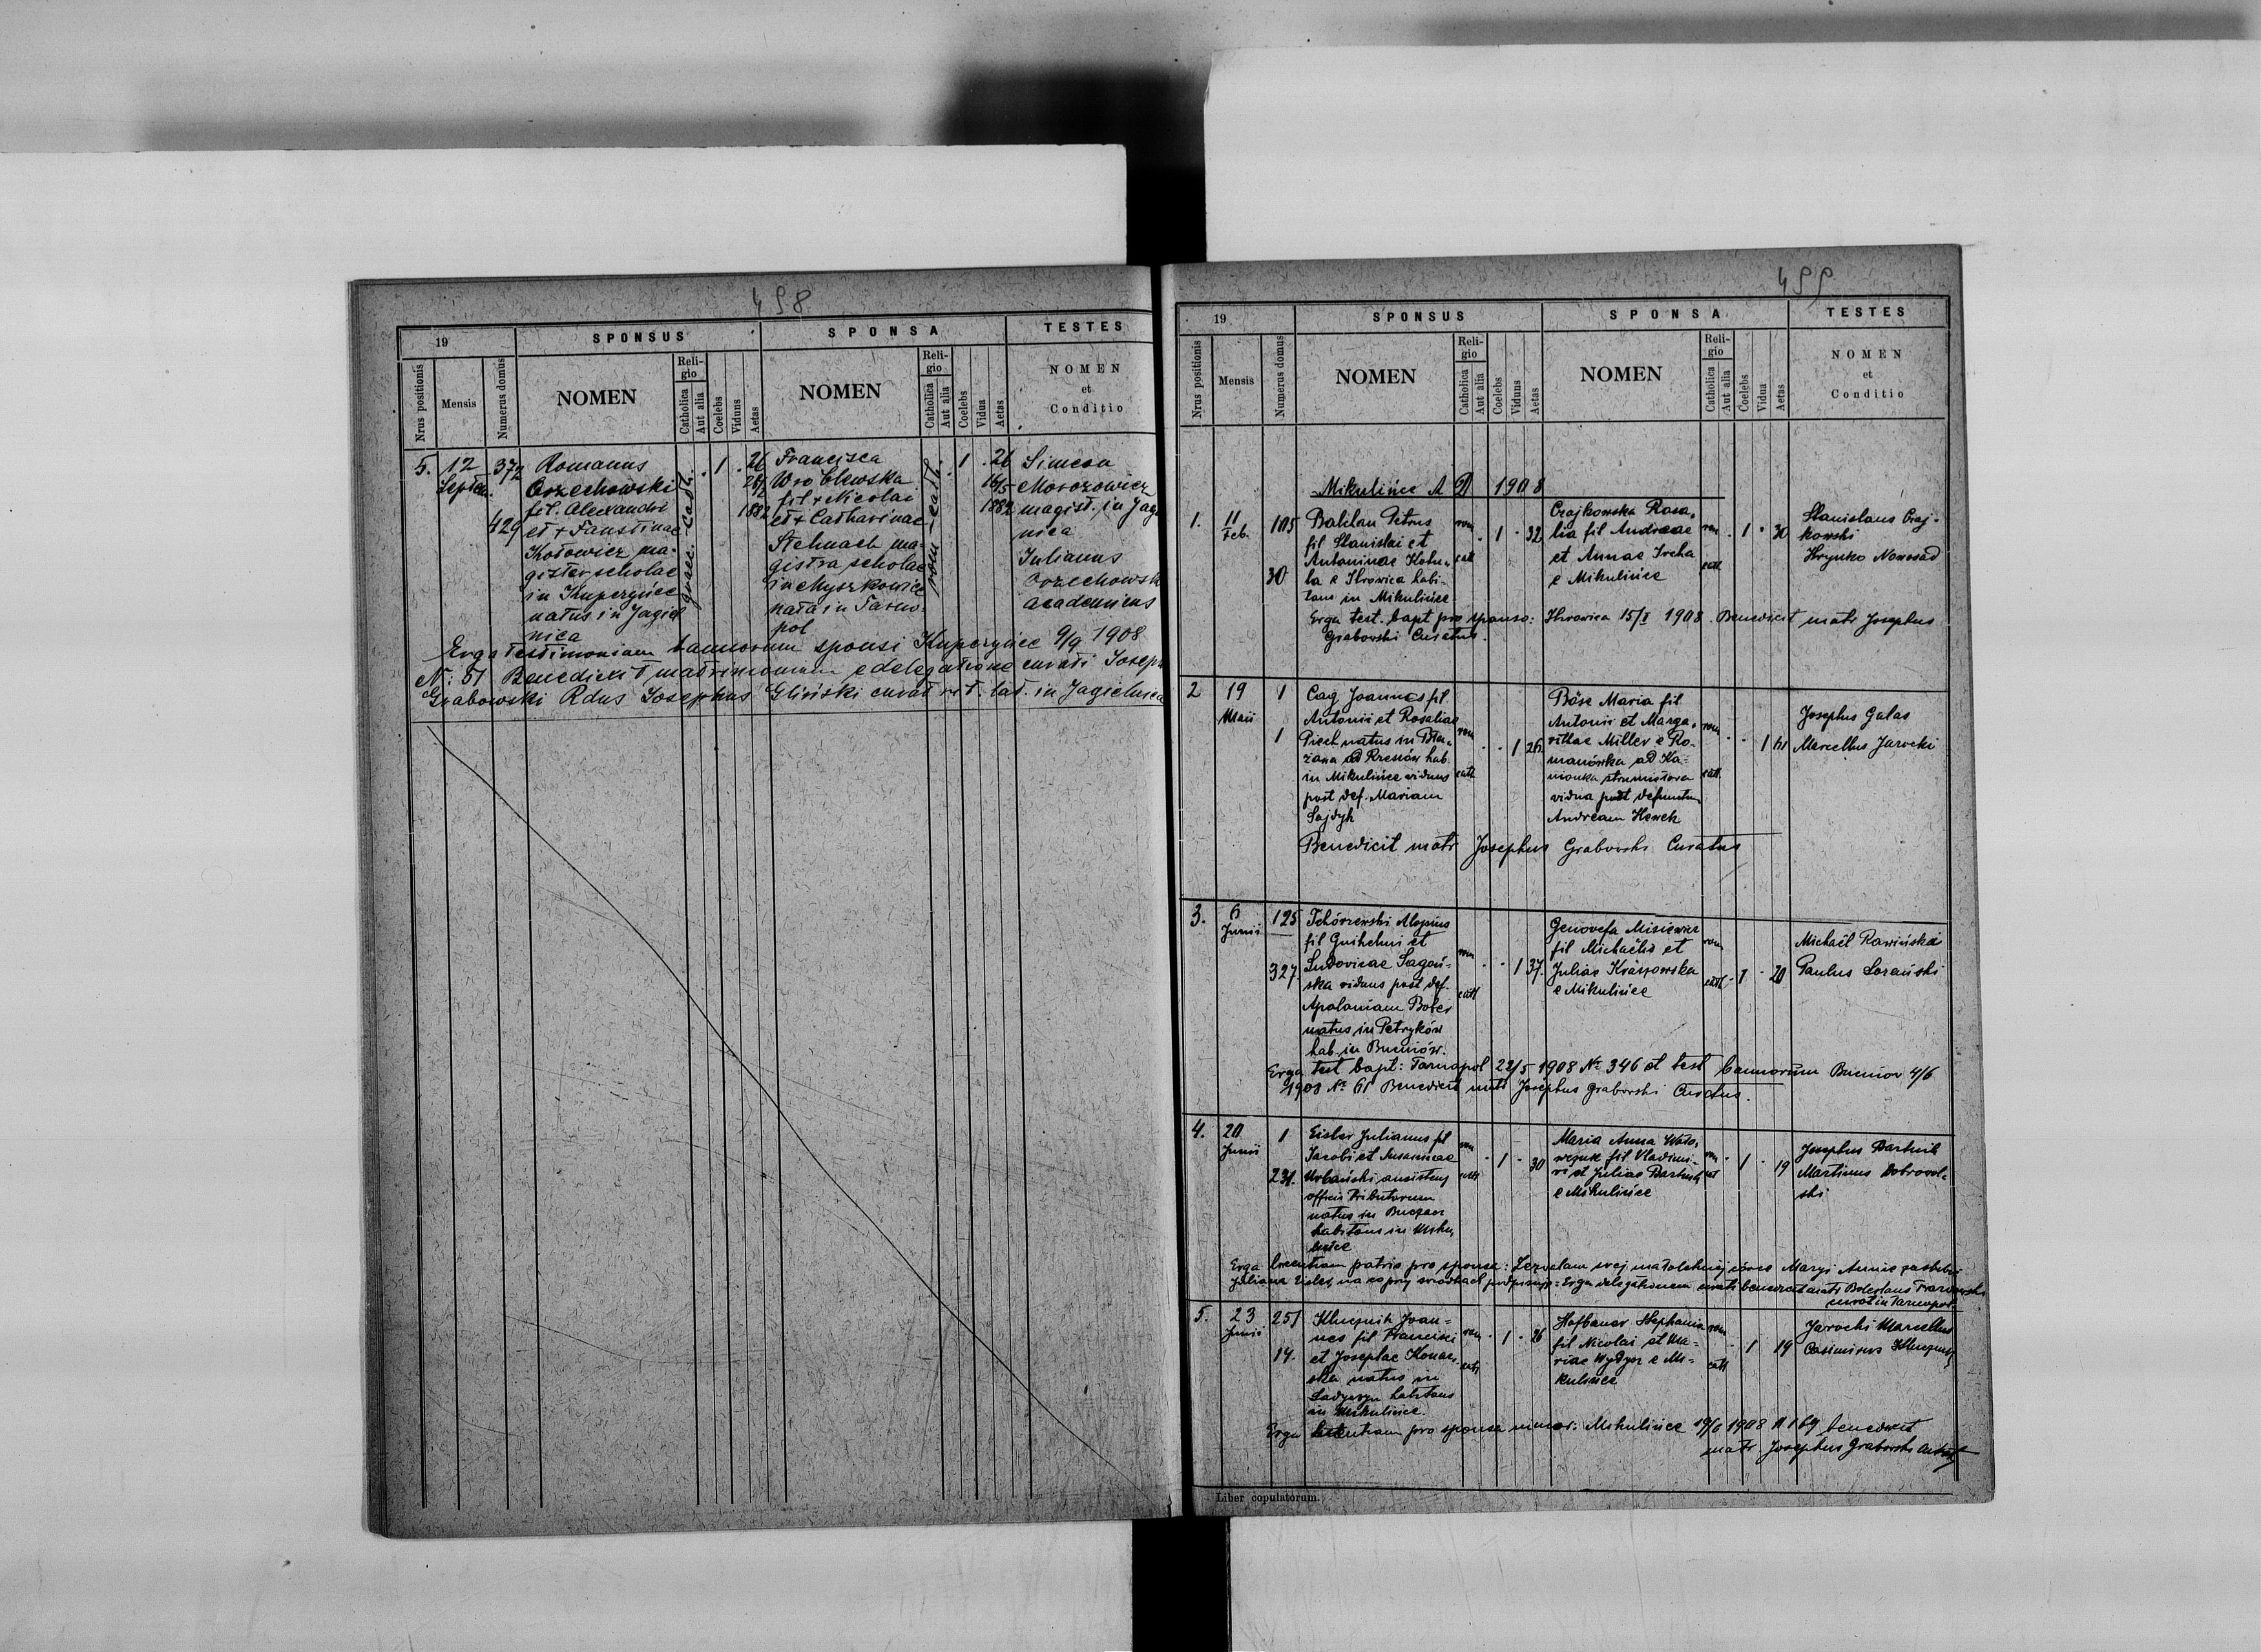 498
19
SPONSUS
SPONSA
TESTES
Nrus positionis
Mensis
Numerus domus
NOMEN
Religio
Catholica
Aut alia
Coelebs
Viduus
Aetas
NOMEN
Religio
Catholica
Aut alia
Coelebs
Vidua
Aetas
NOMEN
et
Conditio
5.
12
Septem.
372
429
Romanus
Orzechowski
fil. Alexandri
et + Faustinae
Kotowicz ma-
gister scholae
in Kupczyńce
natus in Jagiel
nica
graec. cath.
1
26
26/2
1882
Francisca
Wroblewska
fil + Nicolai
et + Catharinae
Stelmach ma-
gistra scholae
in Myszkowice
nata in Tarno-
pol
rom-cath.
1
26
16/5
1882
Simeon
Morozowicz
magist. in Jagi
nica
Julianus
Orzechowsk
academicus
Erga testimonium bannorum sponsi Kupczyńce 9/9 1908
N: 51 Benedicit matrimonium e delegatione curati Joseph
Grabowski Rdus Josephus Gliński curat rit. lat. in Jagielnica
499
19
SPONSUS
SPONSA
TESTES
Nrus positionis
Mensis
Numerus domus
NOMEN
Religio
Catholica
Aut alia
Coelebs
Viduus
Aetas
NOMEN
Religio
Catholica
Aut alia
Coelebs
Vidua
Aetas
NOMEN
et
Conditio
Mikulińce A D 1908
1.
11
Feb.
105
30
Petrus
fil Stanislai et
Antoninae
la e Ihrowica habi-
tans in Mikulińce
rom
cath
1
32
Czajkowska Rosa-
lia fil Andreae
et Annae Ircha
e Mikulińce
rom
cath
1
30
Stanislaus Czaj-
kowski
Hrynko Nowosad
Erga test. bapt pro sponso: Ihrowica 15/I 1908. Benedicit matr Josephus
Grabowski Curatus.
2
19
Maii
1
1
Cag Joannes fil
Antonii et Rosaliae
Piech natus in
ad Krenów hab.
in Mikulińce viduus
post def. Mariam
Sajdyk
rom
cath
1
26
Böse Maria fil
Antonii et Marga-
rithae Miller e Ro-
manówka ad Ka-
mionka strumiłowa
vidua post defunctum
Andream
rom
cath
1
Josephus Galas
Marcellus Jarocki
Benedicit matr Josephus Grabowski Curatus
3.
6
Junii
125
327
Tchórzewski Aloysius
fil Guihelmi et
Ludovicae Sagań-
ska viduus post def.
Apoloniam Bober
natus in Petryków
hab. in Bucniów.
rom
cath
1
37.
Genovefa Misiewicz
fil Michaëlis et
Juliae
e Mikulińce
rom
cath
1
20
Michaël Rawiński
Paulus
Erga test bapt: Tarnopol 22/5 1908 No 346 et test bannorum Bucniow 4/6
1908 No 61 Benedicit matr Josephus Grabowski Curatus.
4.
20
Junii
1
231.
Eisler Julianus fil
Jacobi et Susannae
Urbański assistens
officii tributorum
natus in Buczacz
habitans in Miku-
lińce
rom
cath
1
30
Maria Anna
fil Vladimi-
ri et Juliae Bartnik
e Mikulińce
rom
cat
1
19
Josephus Bartnik
Martinus Dobrowol-
ski
Erga licentiam patris pro sponsa: Zezwalam swej małoletniej córce Maryi Annie zaślubić
Juliana Eisler, na co przy świadkach podpisuję = Erga delegationem curati benedicit matr Boleslaus
curat in Tarnopol
5.
23
Junii
251
14.
Joan-
nes fil Francisci
et Josephae
natus in
Ładyczyn habitans
in Mikulińce.
rom
cath
1
26
Hofbauer Stephania
fil Nicolai et Ma-
riae e Mi-
kulińce
rom
cath
1
19
Jarocki Marcellus
Casimirus
Erga licentiam pro sponsa minor: Mikulińce 19/6 1908 benedicit
matr Josephus Grabowski Curat
Liber copulatorum.